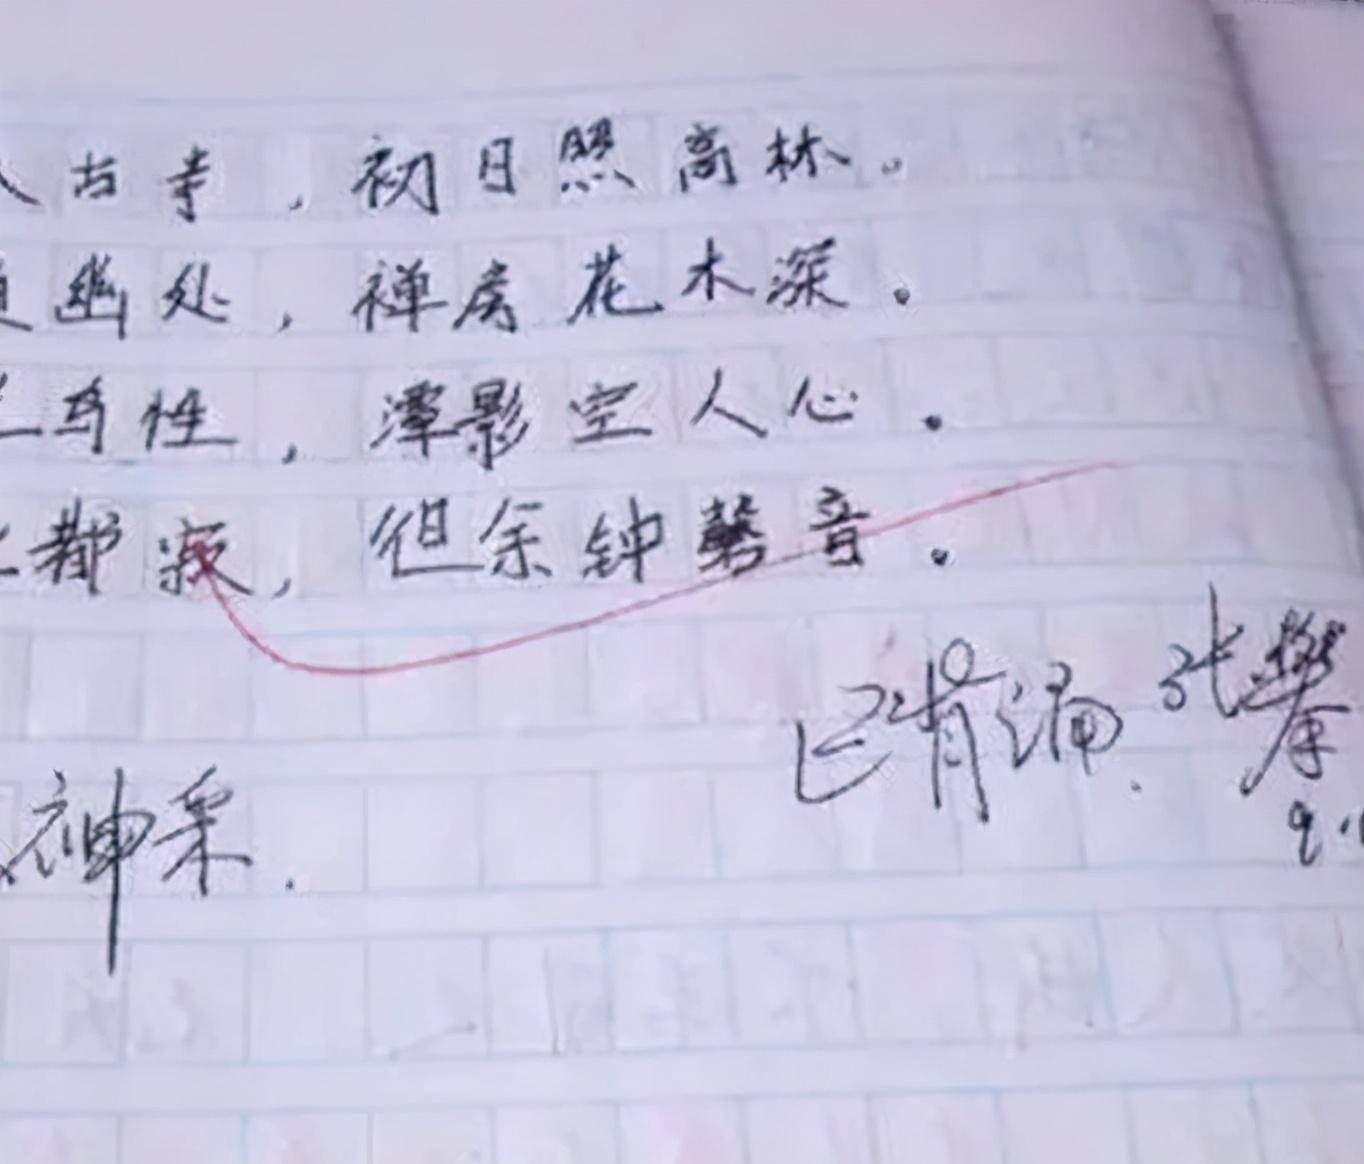 入古寺，初日照高林。
通幽处，禅房花木深。
鸟性，潭影空人心。
都寂，但余钟磬音。
已背诵.张攀
神采.
9.1